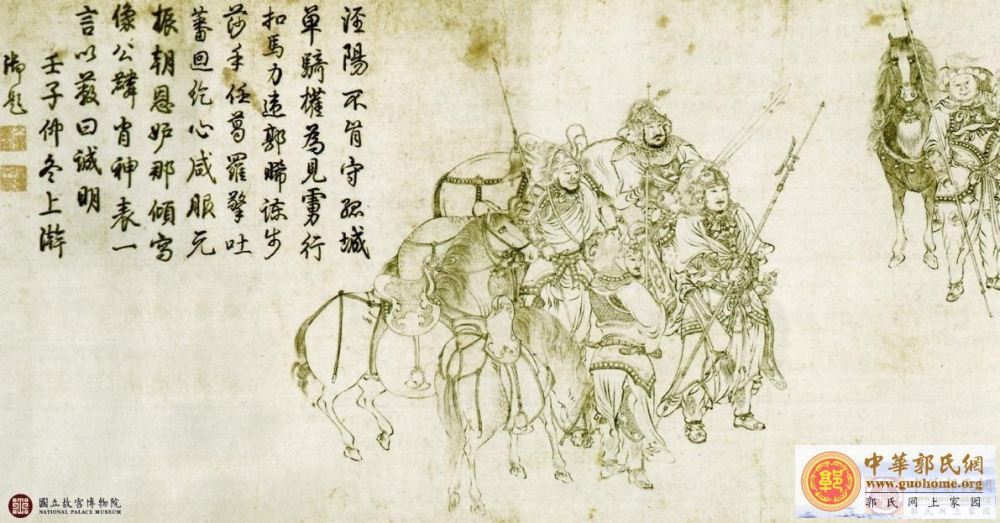 涇陽不肯守孤城
單騎權為見虜行
扣馬力違郭晞諫步
莎手任葛羅擎吐
蕃回紇心咸服元
振朝恩妒那傾寫
像公麟肖神表一
言以蔽曰誠明
壬子仲冬上澣
御題
國立故宮博物院
NATIONAL PALACE MUSEUM
中華郭氏網
www.guohome.org
郭氏网上家园